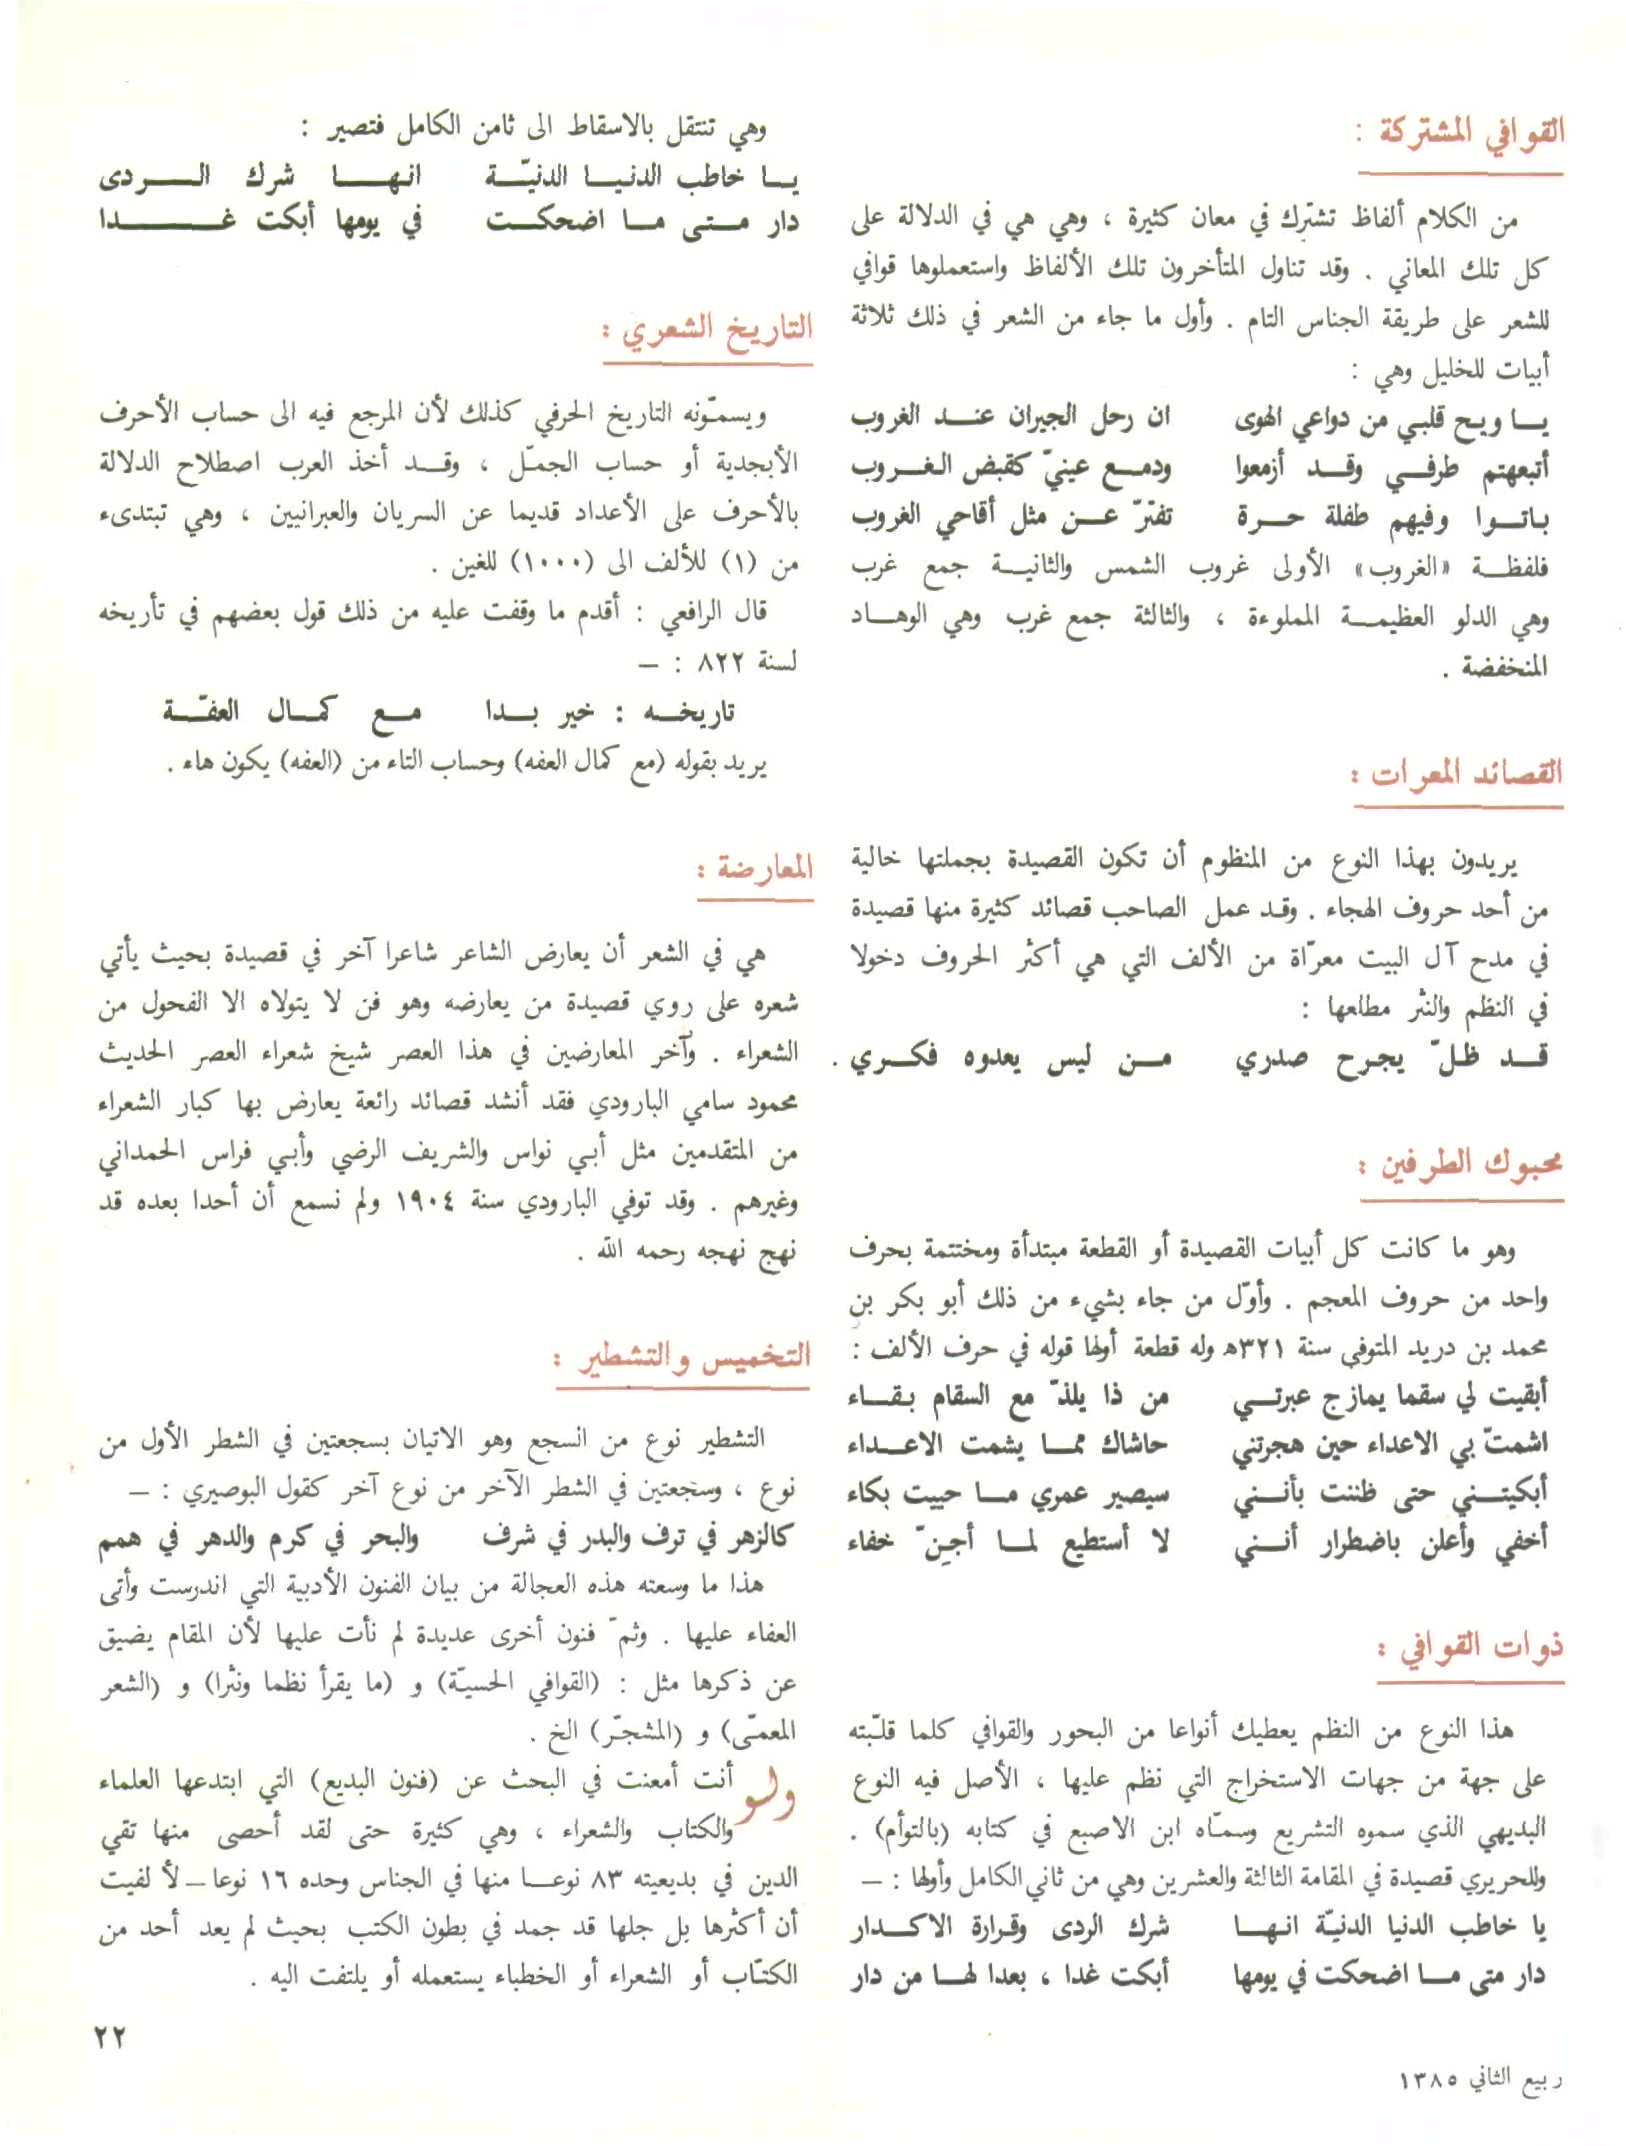 القوافي المشتركة :
من الكلام ألفاظ تشترك في معان كثيرة ، وهي هي في الدلالة على
كل تلك المعاني . وقد تناول المتأخرون تلك الألفاظ واستعملوها قوافي
للشعر على طريقة الجناس التام . وأول ما جاء من الشعر في ذلك ثلاثة
أبيات للخليل وهي :
يا ويح قلبي من دواعي الهوى ان رحل الجيران عند الغروب
أتبعهتم طرفي وقد أزمعوا ودمع عينيّ كقبض الغروب
باتوا وفيهم طفلة حرة تفترّ عن مثل أقاحي الغروب
فلفظة «الغروب» الأولى غروب الشمس والثانية جمع غرب
وهي الدلو العظيمة المملوءة ، والثالثة جمع غرب وهي الوهاد
المنخفضة .
القصائد المعرات :
يريدون بهذا النوع من المنظوم أن تكون القصيدة بجملتها خالية
من أحد حروف الهجاء . وقد عمل الصاحب قصائد كثيرة منها قصيدة
في مدح آل البيت معرّاة من الألف التي هي أكثر الحروف دخولا
في النظم والنثر مطلعها :
قد ظلّ يجرح صدري من ليس يعدوه فكري .
محبوك الطرفين :
وهو ما كانت كل أبيات القصيدة أو القطعة مبتدأة ومختتمة بحرف
واحد من حروف المعجم . وأوّل من جاء بشيء من ذلك أبو بكر بن
محمد بن دريد المتوفي سنة ٣٢١ه وله قطعة أولها قوله في حرف الألف :
أبقيت لي سقما يمازج عبرتي من ذا يلذّ مع السقام بقاء
اشمتّ بي الاعداء حين هجرتني حاشاك مما يشمت الاعداء
أبكيتني حتى ظننت بأنني سيصير عمري ما حييت بكاء
أخفي وأعلن باضطرار أنني لا أستطيع لما أجنّ خفاء
ذوات القوافي :
هذا النوع من النظم يعطيك أنواعا من البحور والقوافي كلما قلّبته
على جهة من جهات الاستخراج التي نظم عليها ، الأصل فيه النوع
البديهي الذي سموه التشريع وسمّاه ابن الاصبع في كتابه (بالتوأم) .
وللحريري قصيدة في المقامة الثالثة والعشرين وهي من ثاني الكامل وأولها : ـ
يا خاطب الدنيا الدنيّة انها شرك الردى وقرارة الاكدار
دار متى ما اضحكت في يومها أبكت غدا ، بعدا لها من دار
وهي تنتقل بالاسقاط الى ثامن الكامل فتصير :
يا خاطب الدنيا الدنيّة انها شرك الردى
دار متى ما اضحكت في يومها أبكت غدا
التاريخ الشعري :
ويسمّونه التاريخ الحرفي كذلك لأن المرجع فيه الى حساب الأحرف
الأبجدية أو حساب الجمّل ، وقد أخذ العرب اصطلاح الدلالة
بالأحرف على الأعداد قديما عن السريان والعبرانيين ، وهي تبتدىء
من (١) للألف الى (١٠٠٠) للغين .
قال الرافعي : أقدم ما وقفت عليه من ذلك قول بعضهم في تأريخه
لسنة ٨٢٢ : ـ
تاريخه : خير بدا مع كمال العفّة
يريد بقوله (مع كمال العفه) وحساب التاء من (العفه) يكون هاء .
المعارضة :
هي في الشعر أن يعارض الشاعر شاعرا آخر في قصيدة بحيث يأتي
شعره على روي قصيدة من يعارضه وهو فن لا يتولاه الا الفحول من
الشعراء . وآخر المعارضين في هذا العصر شيخ شعراء العصر الحديث
محمود سامي البارودي فقد أنشد قصائد رائعة يعارض بها كبار الشعراء
من المتقدمين مثل أبي نواس والشريف الرضي وأبي فراس الحمداني
وغيرهم . وقد توفي البارودي سنة ١٩٠٤ ولم نسمع أن أحدا بعده قد
نهج نهجه رحمه الله .
التخميس والتشطير :
التشطير نوع من السجع وهو الاتيان بسجعتين في الشطر الأول من
نوع ، وسجعتين في الشطر الآخر من نوع آخر كقول البوصيري : ـ
كالزهر في ترف والبدر في شرف والبحر في كرم والدهر في همم
هذا ما وسعته هذه العجالة من بيان الفنون الأدبية التي اندرست وأتى
العفاء عليها . وثمّ فنون أخرى عديدة لم نأت عليها لأن المقام يضيق
عن ذكرها مثل : (القوافي الحسيّة) و (ما يقرأ نظما ونثرا) و (الشعر
المعمّى) و (المشجّر) الخ .
ولو أنت أمعنت في البحث عن (فنون البديع) التي ابتدعها العلماء
والكتاب والشعراء ، وهي كثيرة حتى لقد أحصى منها تقي
الدين في بديعيته ٨٣ نوعا منها في الجناس وحده ١٦ نوعا ـ لألفيت
أن أكثرها بل جلها قد جمد في بطون الكتب بحيث لم يعد أحد من
الكتّاب أو الشعراء أو الخطباء يستعمله أو يلتفت اليه .
٢٢
ربيع الثاني ١٣٨٥